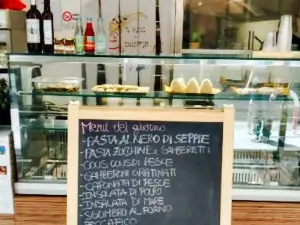 Menu del giorno
- PASTA AL NERO DI SEPPIE
- PASTA ZUCCHINE E GAMBERETTI
- COUS COUS DI PESCE
- GAMBERONI GRATINATI
- CAPONATA DI PESCE
- INSALATA DI POLPO
- INSALATA DI MARE
- SGOMBRO AL FORNO
BECCAFICO